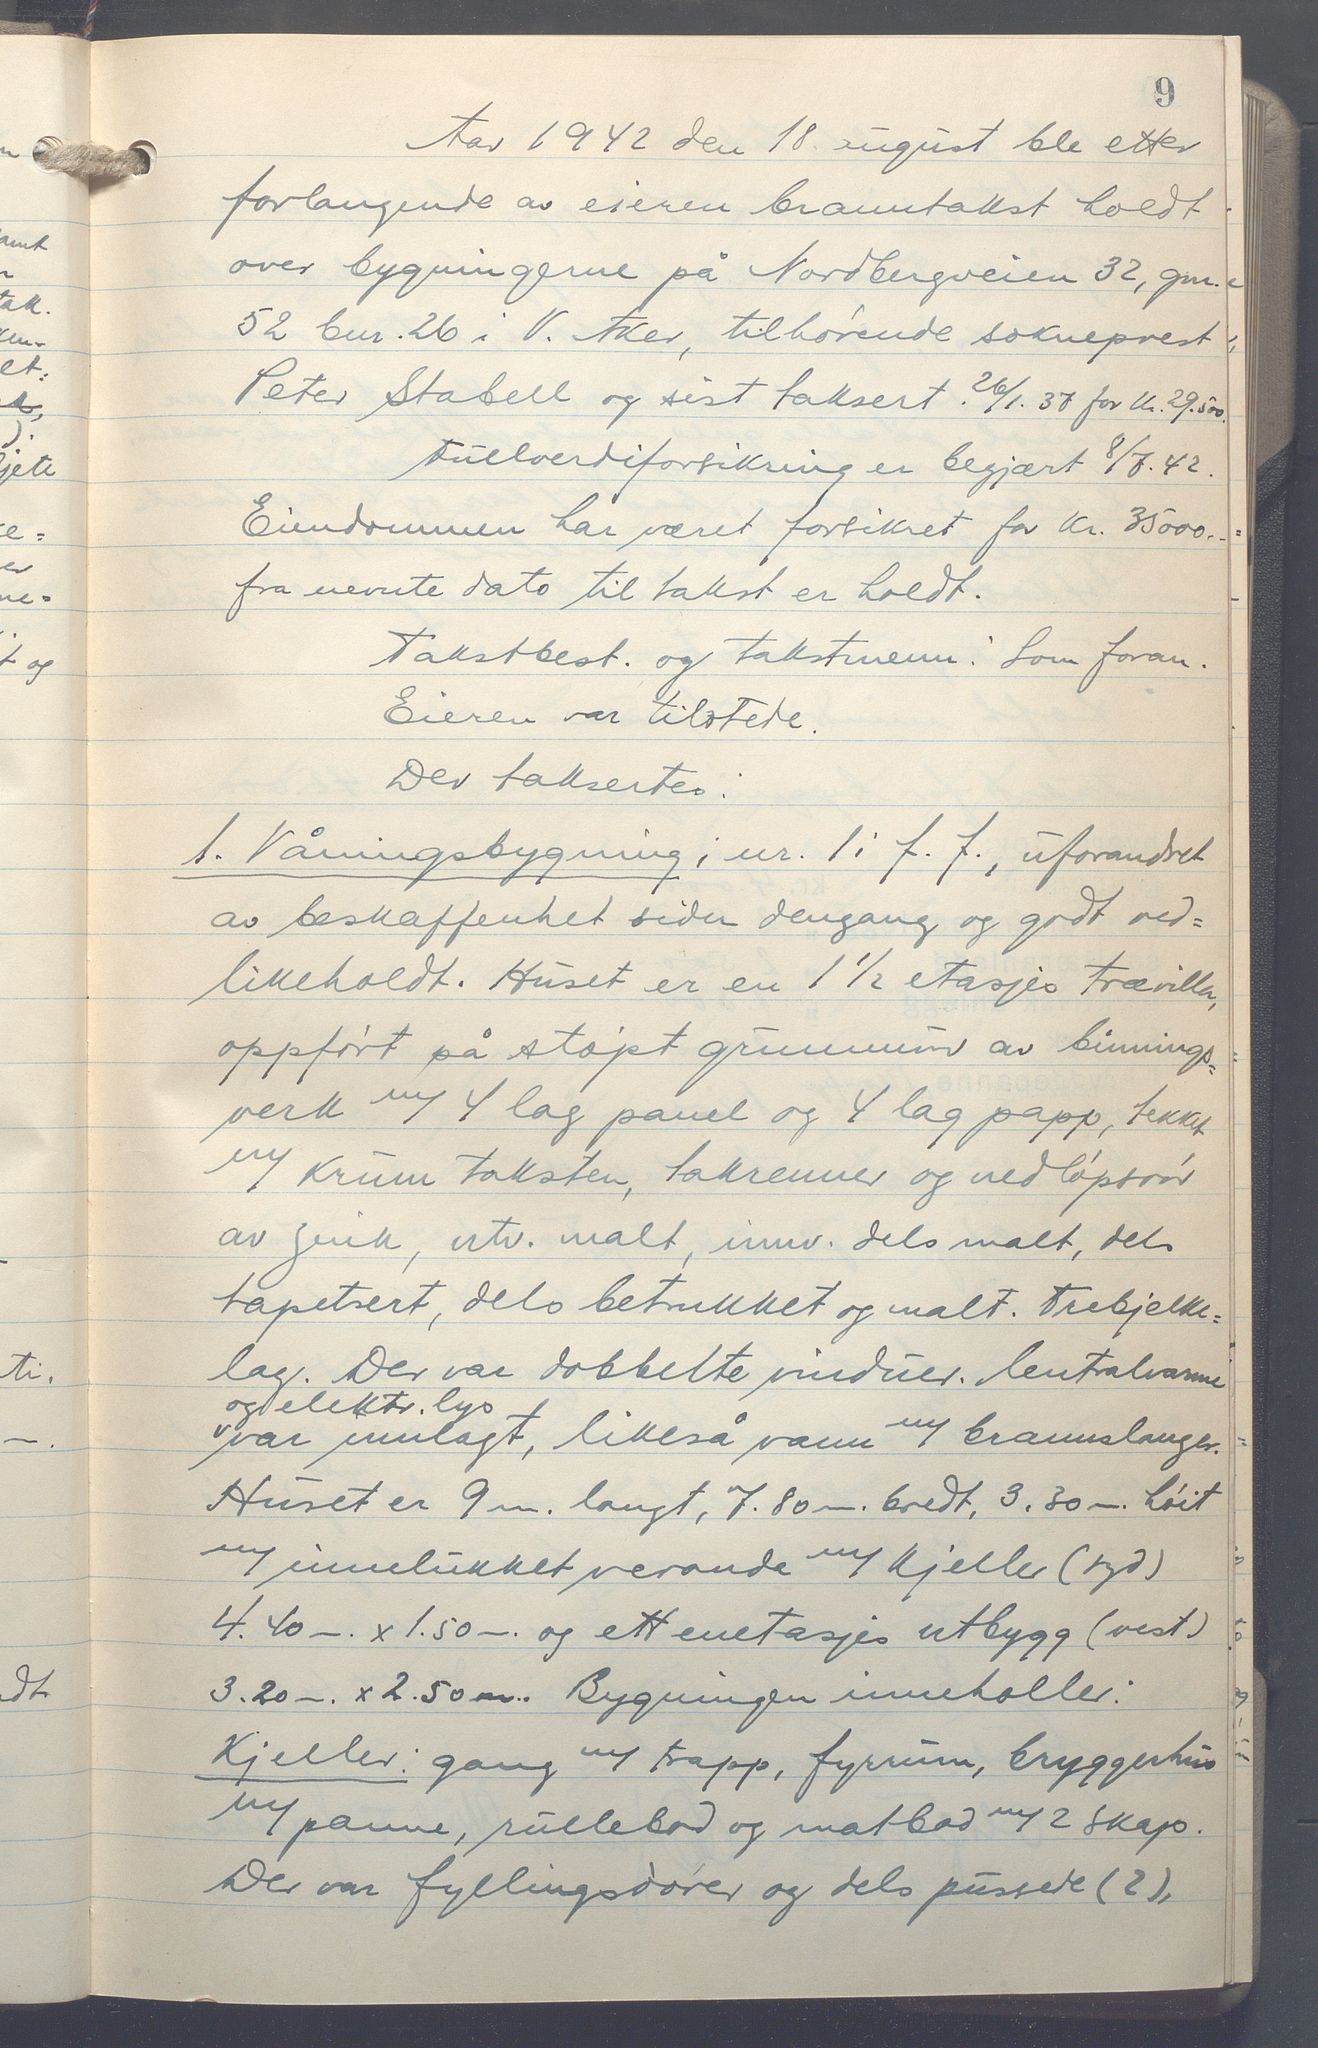 9
Aar 1942 den 18. august ble etter
forlangende av eieren branntakst holdt
over bygningerne på Nordbergveien 32, gnr.
52 bnr. 26 i V. Aker, tilhørende sokneprest
Peter Stabell og sist taksert 26/1. 37 for kr. 29.500.
Fullverdiforsikring er begjært 8/7. 42.
Eiendommen har været forsikret for kr. 35000.-
fra nevnte dato til takst er holdt.
Takstbest. og takstmenn: Som foran.
Eieren var tilstede.
Der taksertes:
1. Våningsbygning; nr. 1 i f. f., uforandret
av beskaffenhet siden dengang og godt ved=
likeholdt. Huset er en 1 1/2 etasjes trævilla,
oppført på støpt grunnmur av binnings=
verk m/ 4 lag panel og 4 lag papp, tekket
m/ krum taksten, takrenner og nedløpsrør
av zink, utv. malt, innv. dels malt, dels
tapetsert, dels betrukket og malt. Trebjelke=
lag. Der var dobbelte vinduer. Centralvarme
og elektr. lys
var innlagt, likeså vann m/ brannslanger.
Huset er 9 m. langt, 7.80 m. bredt, 3.30 m. høit
m/ innelukket veranda m/ kjeller (syd)
4.40 m. x 1.50 m. og ett enetasjes utbygg (vest)
3.20 m. x 2.50 m. Bygningen inneholler:
Kjeller: gang m/ trapp, fyrrum, bryggerhus
m/ panne, rullebod og matbod m/ 2 skap.
Der var fyllingsdører og dels pussede (2),